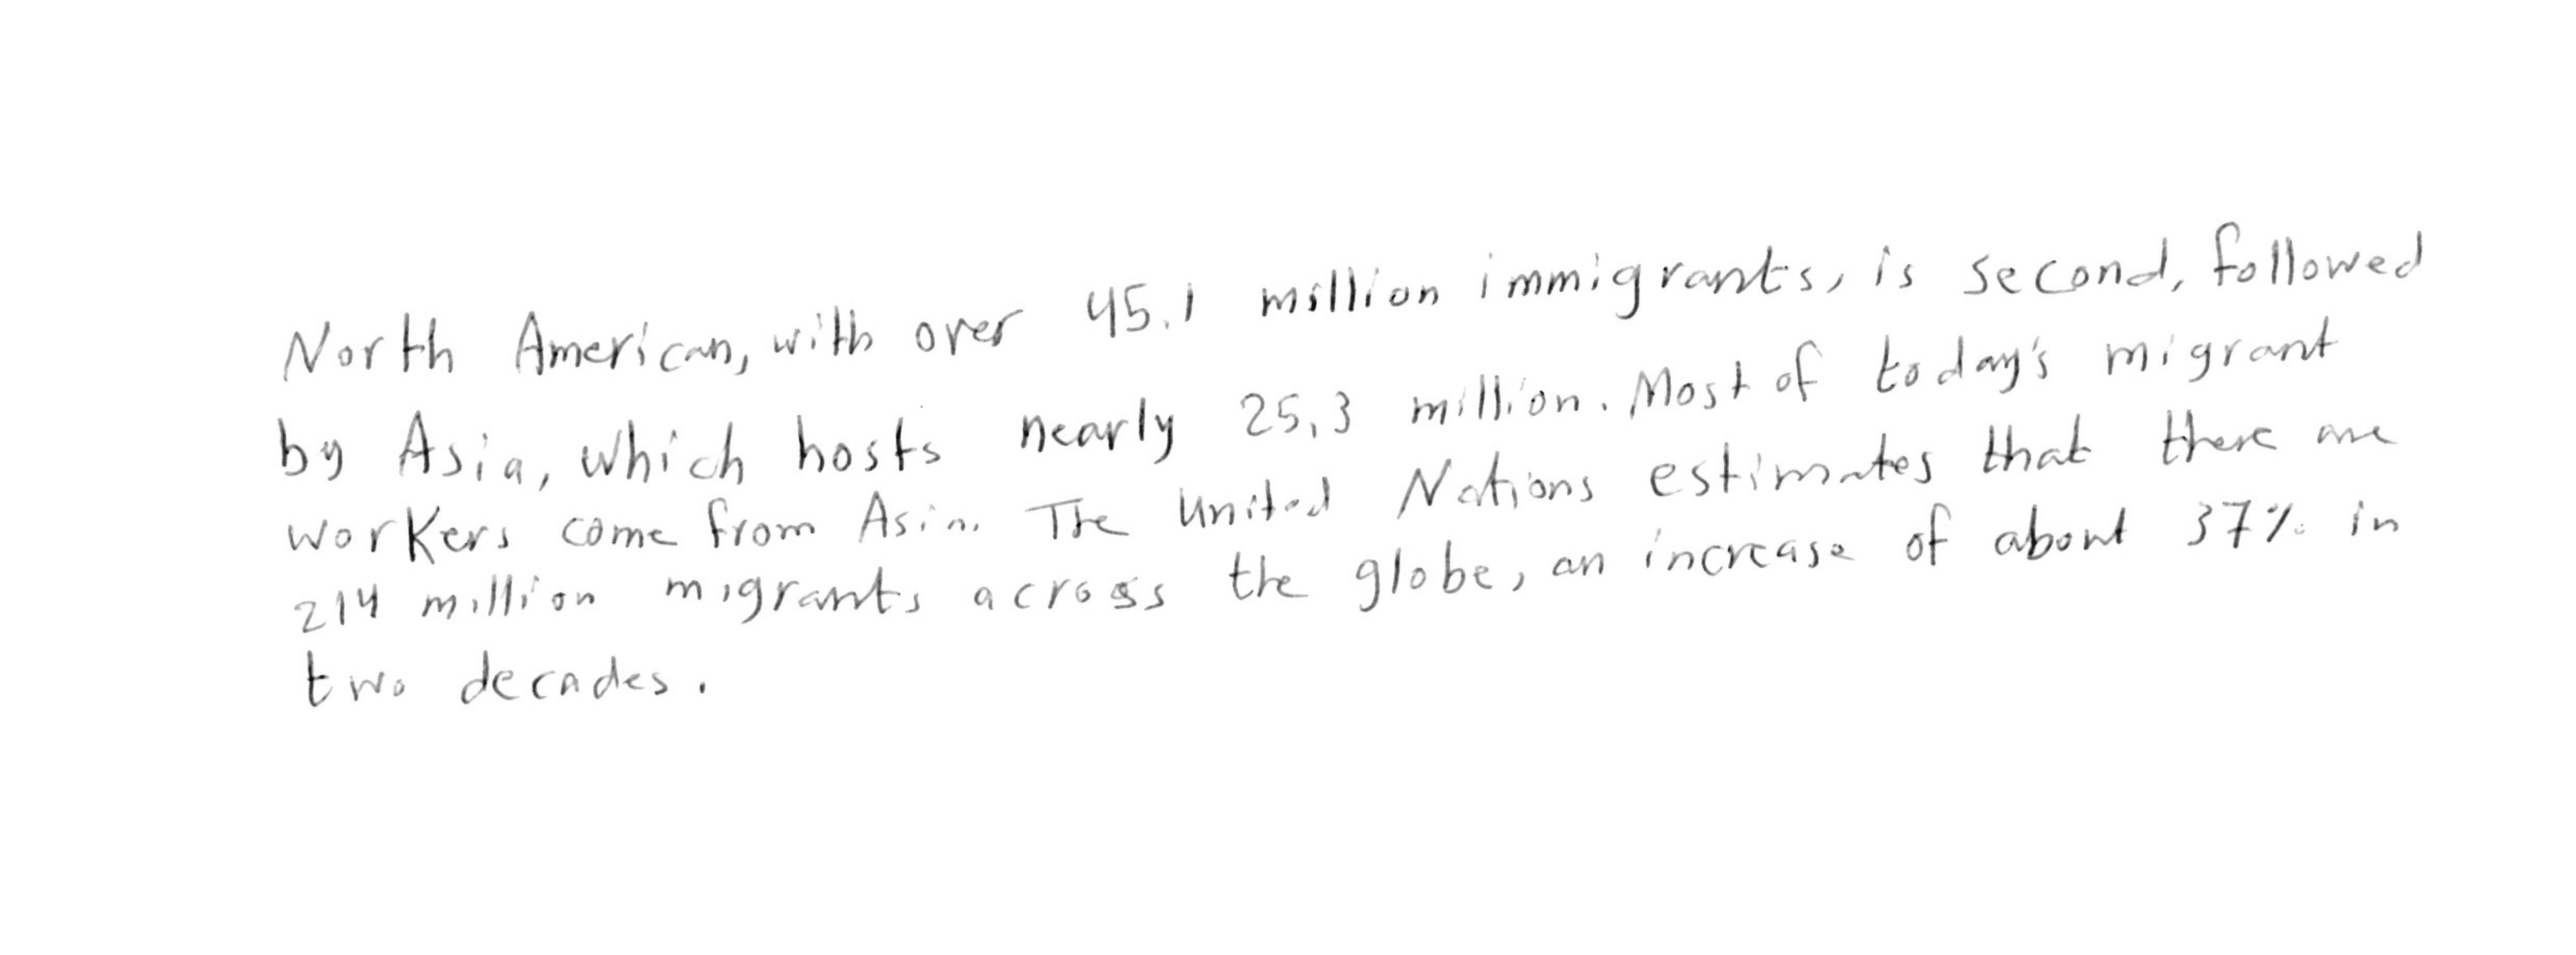 North American, with over 45.1 million immigrants, is second, followed
by Asia, which hosts nearly 25.3 million. Most of today's migrant
workers come from Asia. The United Nations estimates that there are
214 million migrants across the globe, an increase of about 37% in
two decades.